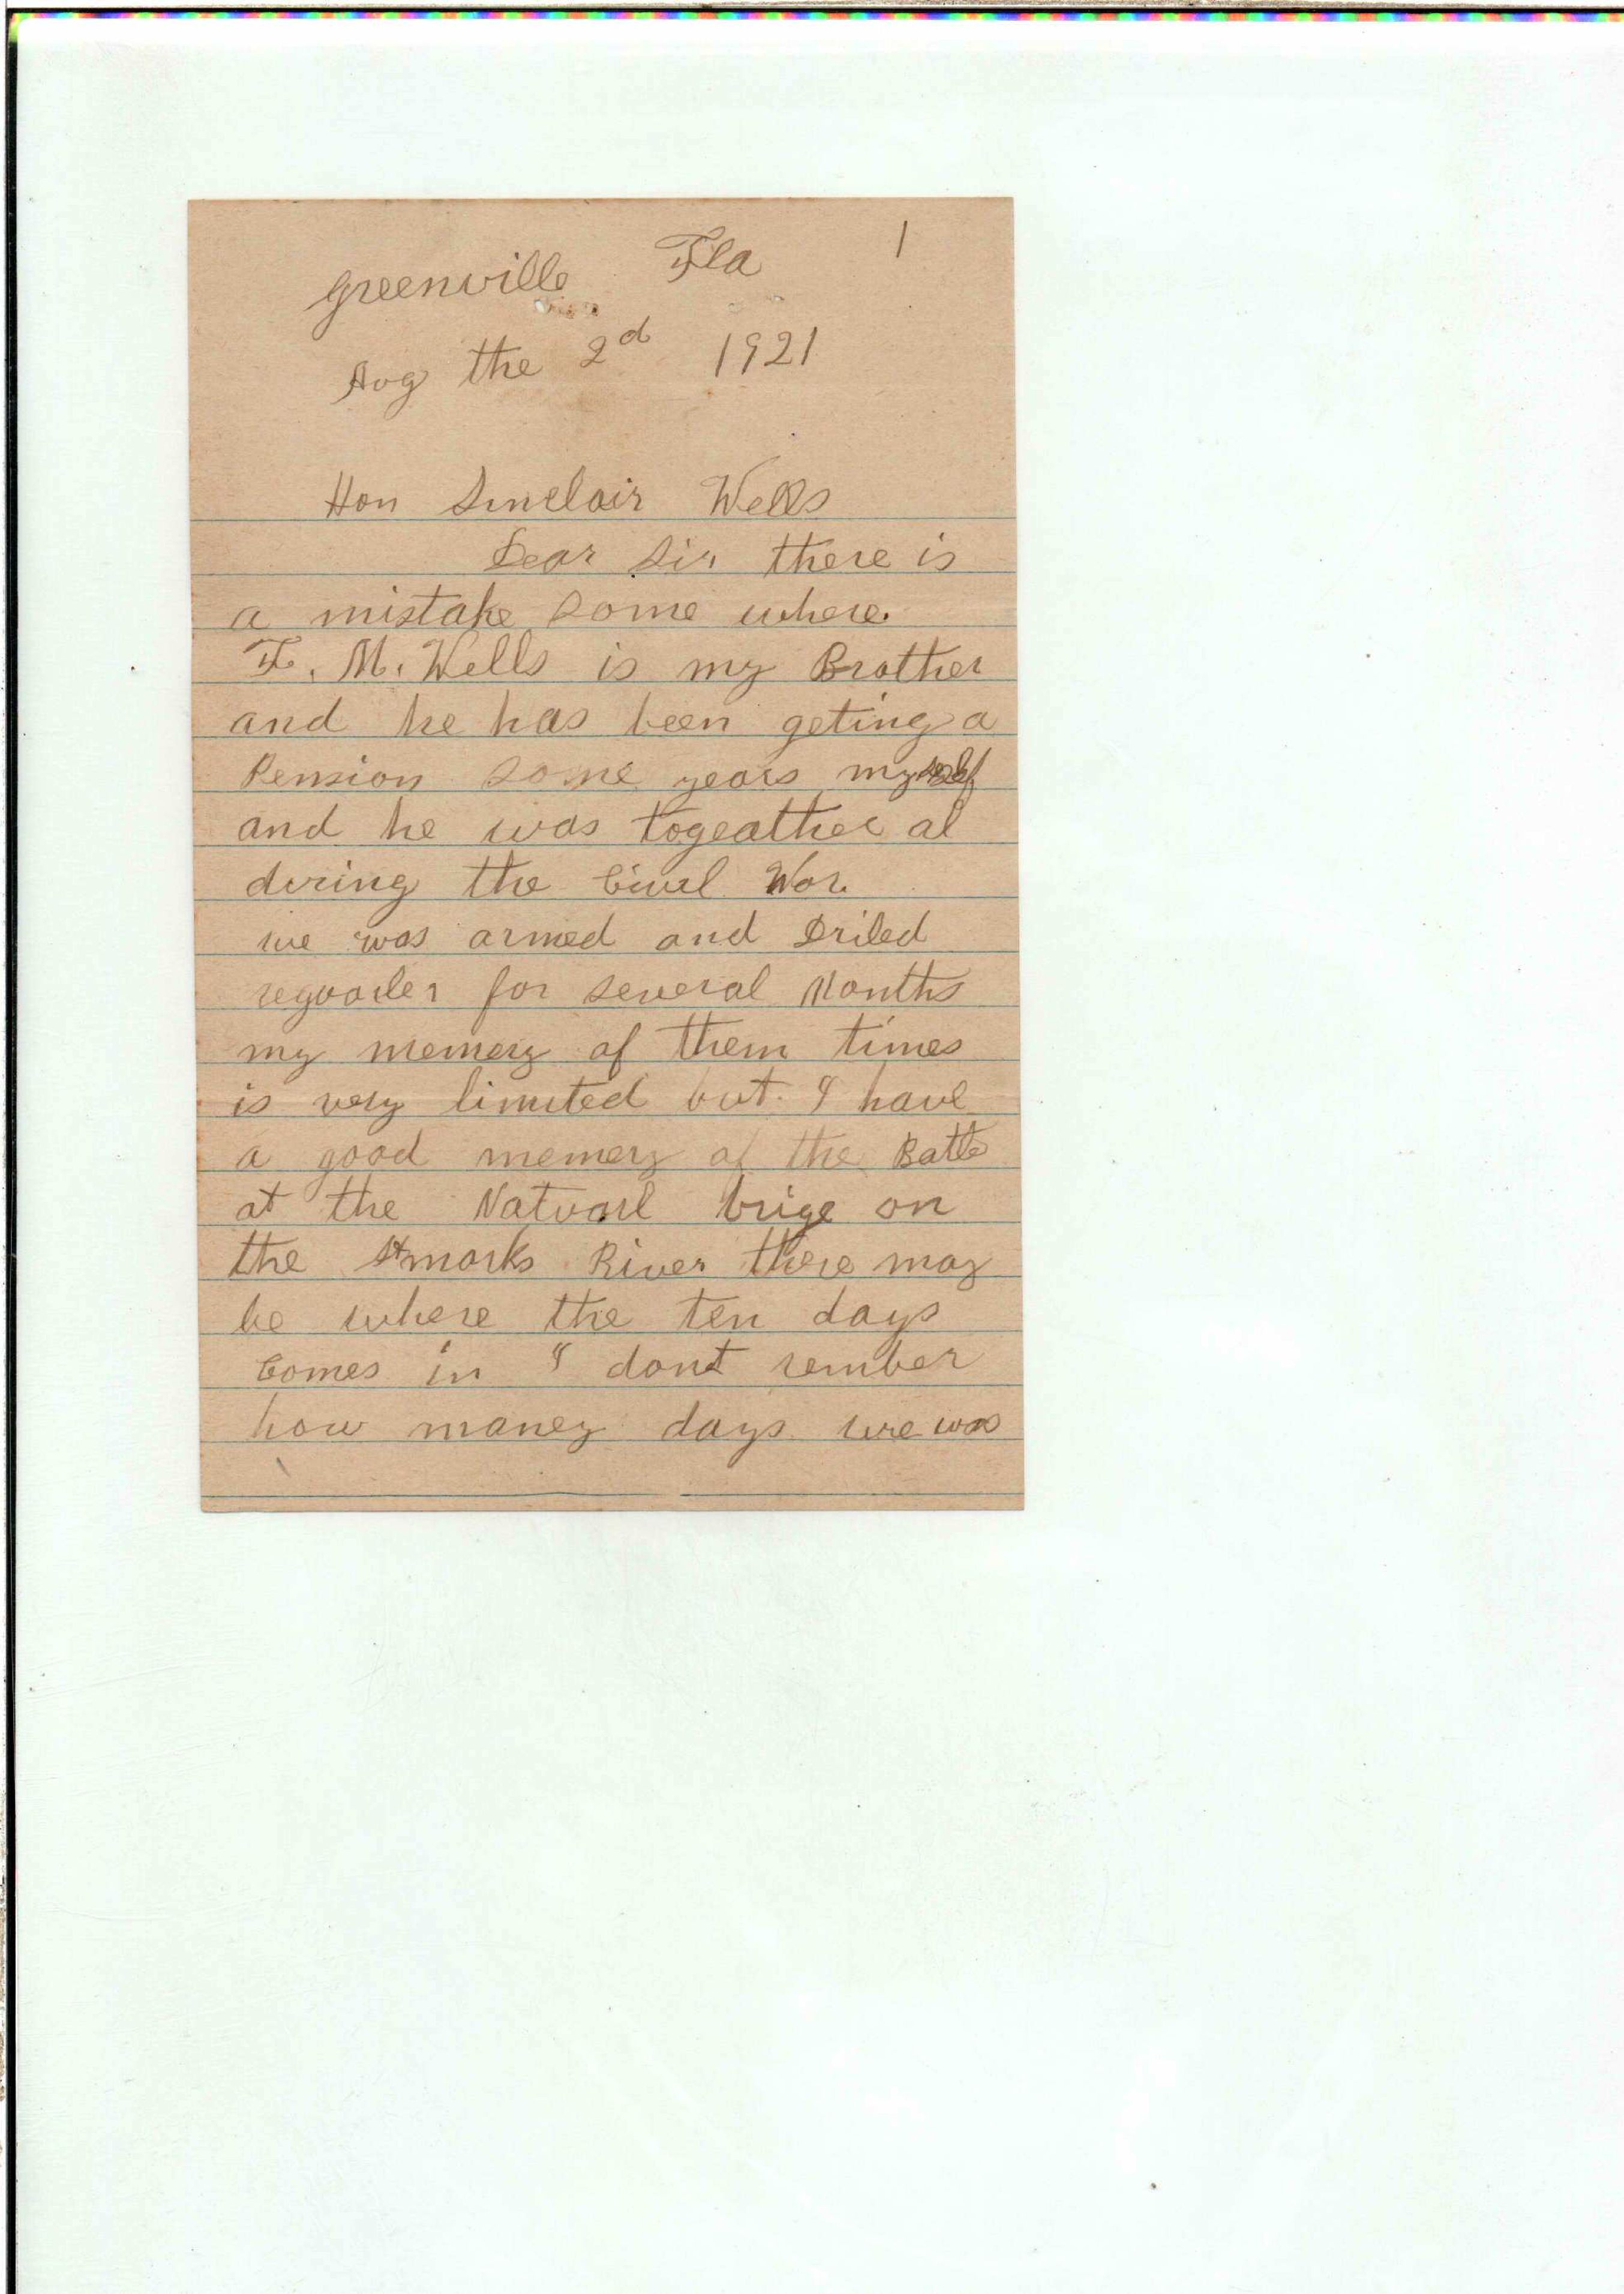 1
Greenville Fla
Aug the 2d 1921
Hon Sinclair Wells
Dear Sir there is
a mistake some where.
F. M. Wells is my Brother
and he has been geting a
Pension some years myself
and he was togeather al
during the Civel War.
we was armed and Driled
regualer for several Months
my memery of them times
is very limited but I have
a good memery of the Battle
at the Natuarl brige on
the Stmarks River there may
be where the ten days
Comes in I dont rember
how maney days we was